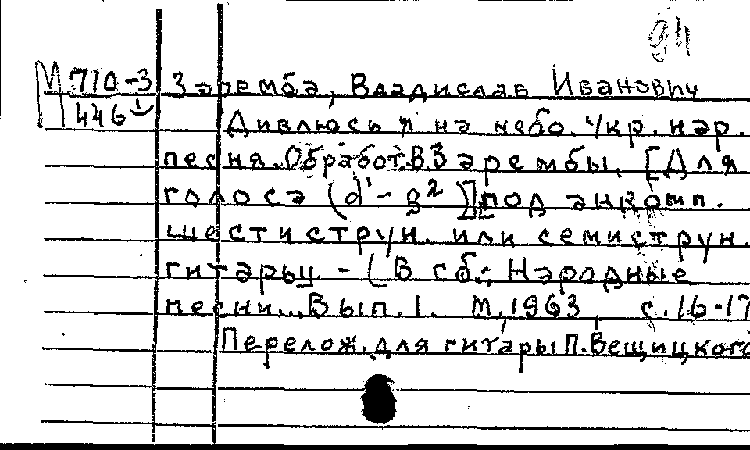 94
М 710-3 Заремба, Владислав Иванович
446
Дивлюсь я на небо. Укр. нар.
песня. Обработ. В. Зарембы. [Для
голоса (d¹ - g²)] [под аккомп.
шестиструн. или семиструн.
гитары - (В сб.: Народные
песни... Вып. 1. М., 1963, с. 16-17
Перелож. для гитары П. Вещицкого